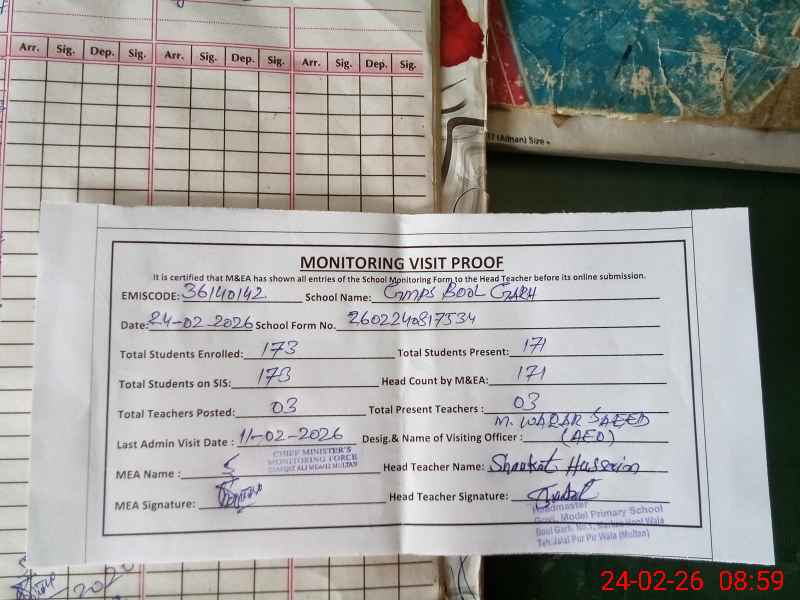 Arr. Sig. Dep. Sig. Arr. Sig. Dep. Sig. Arr. Sig. Dep. Sig.
(Adnan) Size
MONITORING VISIT PROOF
It is certified that M&EA has shown all entries of the School Monitoring Form to the Head Teacher before its online submission.
EMISCODE: 36140142 School Name: GMPS BOOL GARH
Date: 24-02-2026 School Form No. 2602240817534
Total Students Enrolled: 173 Total Students Present: 171
Total Students on SIS: 173 Head Count by M&EA: 171
Total Teachers Posted: 03 Total Present Teachers : 03
M. WAQAR SAEED
Last Admin Visit Date : 11-02-2026 Desig.& Name of Visiting Officer : (AEO)
CHIEF MINISTER'S
MONITORING FORCE
MEA Name : Head Teacher Name: Shaukat Hussain
MEA Signature: Head Teacher Signature:
Headmaster
Govt. Model Primary School
Bool Garh No.1,
Teh. Jalal Pur Pir Wala (Multan)
24-02-26 08:59